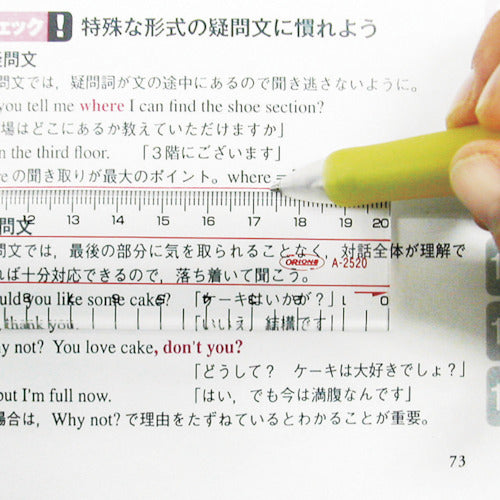 ェック ! 特殊な形式の疑問文に慣れよう
疑問文
問文では，疑問詞が文の途中にあるので聞き逃さないように。
you tell me where I can find the shoe section?
場はどこにあるか教えていただけますか」
n the third floor. 「３階にございます」
re の聞き取りが最大のポイント。where
12 13 14 15 16 17 18 19 20
問文
問文では，最後の部分に気を取られることなく，対話全体が理解で
ORIONS A-2520
れば十分対応できるので，落ち着いて聞こう。
ould you like some cake? 「ケーキはいかが？」
, thank you. 「いいえ，結構です」
y not? You love cake, don't you?
「どうして？ ケーキは大好きでしょ？」
but I'm full now. 「はい，でも今は満腹なんです」
場合は，Why not? で理由をたずねているとわかることが重要。
73